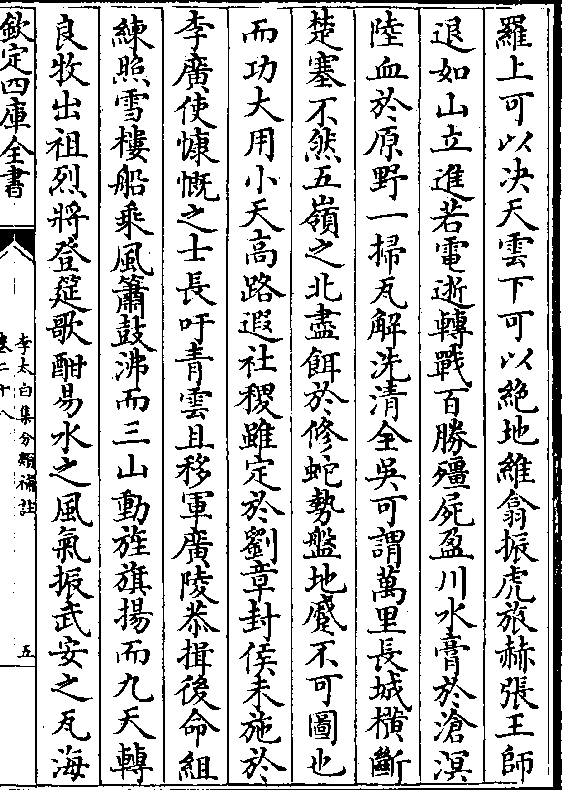 羅上可以決天雲下可以絶地維翕振虎旅赫張王師
退如山立進若電逝轉戰百勝殭屍盈川水膏於滄溟
陸血於原野一掃瓦解洗清全吳可謂萬里長城橫斷
楚塞不然五嶺之北盡餌於修蛇勢盤地蹙不可圖也
而功大用小天高路遐社稷雖定於劉章封侯未施於
李廣使慷慨之士長吁青雲且移軍廣陵恭揖後命組
練照雪樓船乘風簫鼓沸而三山動旌旗揚而九天轉
良牧出祖烈將登筵歌酣易水之風氣振武安之瓦海
欽定四庫全書
李太白集分類補註
卷二十八
五